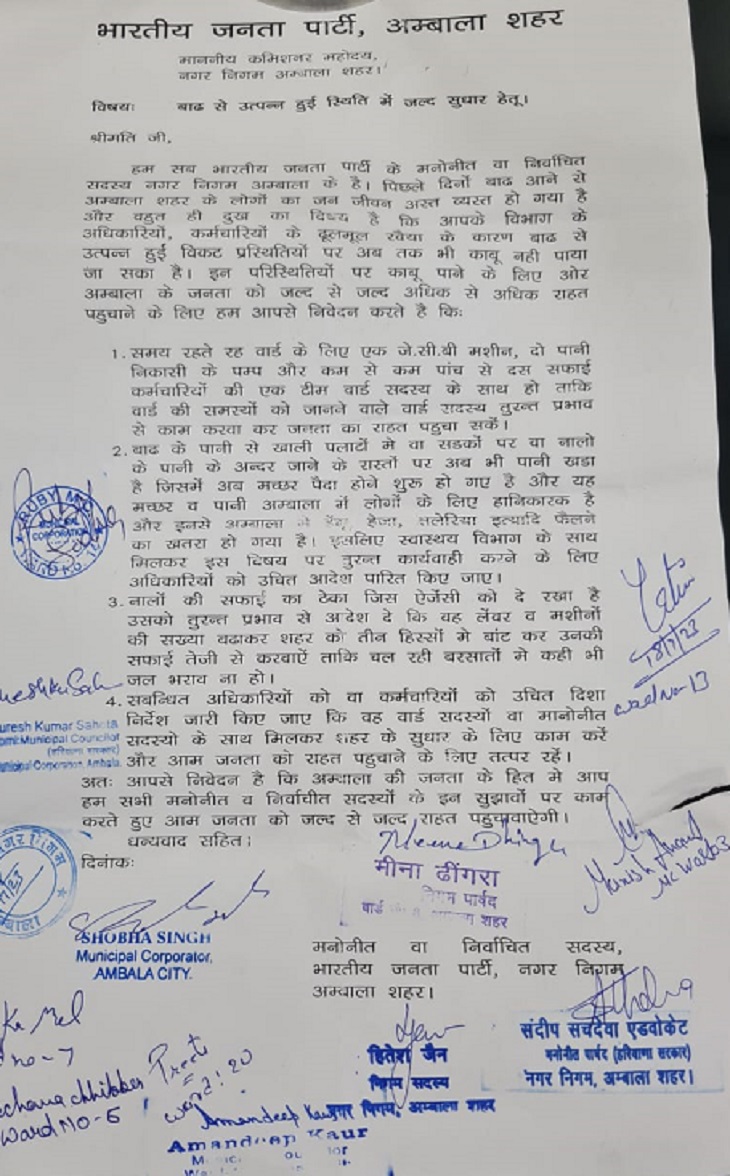 भारतीय जनता पार्टी, अम्बाला शहर
माननीय कमिशनर महोदय,
नगर निगम अम्बाला शहर।
विषयः बाढ से उत्पन्न हुई स्थिति में जल्द सुधार हेतू।
श्रीमति जी,
हम सब भारतीय जनता पार्टी के मनोनीत वा निर्वाचित
सदस्य नगर निगम अम्बाला के है। पिछले दिनों बाढ आने से
अम्बाला शहर के लोगों का जन जीवन अस्त व्यस्त हो गया है
और बहुत ही दुख का विषय है कि आपके विभाग के
अधिकारियों, कर्मचारियों के ढूलमूल रवैया के कारण बाढ से
उत्पन्न हुई विकट प्रस्थितियों पर अब तक भी काबू नही पाया
जा सका है। इन परिस्थितियों पर काबू पाने के लिए ओर
अम्बाला के जनता को जल्द से जल्द अधिक से अधिक राहत
पहुचाने के लिए हम आपसे निवेदन करते है किः
1. समय रहते रह वार्ड के लिए एक जे.सी.बी मशीन, दो पानी
निकासी के पम्प और कम से कम पांच से दस सफाई
कर्मचारियों की एक टीम वार्ड सदस्य के साथ हो ताकि
वार्ड की समस्यों को जानने वाले वार्ड सदस्य तुरन्त प्रभाव
से काम करवा कर जनता का राहत पहुचा सकें।
2. बाढ के पानी से खाली पलाटों मे वा सडकों पर या नालो
के पानी के अन्दर जाने के रास्तों पर अब भी पानी खडा
है जिसमें अब मच्छर पैदा होने शुरू हो गए है और यह
मच्छर व पानी अम्बाला में लोगों के लिए हानिकारक है
और इनसे अम्बाला मे हैजा, मलेरिया इत्यादि फैलने
का खतरा हो गया है। इसलिए स्वास्थय विभाग के साथ
मिलकर इस विषय पर तुरन्त कार्यवाही करने के लिए
अधिकारियों को उचित आदेश पारित किए जाए।
3. नालों की सफाई का ठेका जिस ऐजेंसी को दे रखा है
उसको तुरन्त प्रभाव से आदेश दे कि वह लेंबर व मशीनों
की सख्या बढाकर शहर को तीन हिस्सों मे बांट कर उनकी
सफाई तेजी से करवाऐं ताकि चल रही बरसातों मे कही भी
जल भराव ना हो।
4. सबन्धित अधिकारियों को वा कर्मचारियों को उचित दिशा
निर्देश जारी किए जाए कि वह वार्ड सदस्यों वा मानोनीत
सदस्यो के साथ मिलकर शहर के सुधार के लिए काम करें
और आम जनता को राहत पहुचाने के लिए तत्पर रहें।
अतः आपसे निवेदन है कि अम्बाला की जनता के हित मे आप
हम सभी मनोनीत व निर्वाचीत सदस्यों के इन सुझावों पर काम
करते हुए आम जनता को जल्द से जल्द राहत पहुचावाऐगी।
धन्यवाद सहितः
दिनांकः
RUBY
MUNICIPAL
CORPORATION
18/7/23
ward No-13
uresh Kumar Sahota
Municipal Councillor
(हरियाणा सरकार)
Municipal Corporation Ambala
नगर निगम
Meena Dhingra
मीना ढींगरा
निगम पार्षद
वार्ड शहर
Manish Anand
SHOBHA SINGH
Municipal Corporator,
AMBALA CITY.
मनोनीत वा निर्वाचित सदस्य,
भारतीय जनता पार्टी, नगर निगम
अम्बाला शहर।
संदीप सचदेवा एडवोकेट
मनोनीत पार्षद (हरियाणा सरकार)
नगर निगम, अम्बाला शहर।
हितेश जैन
निगम सदस्य
नगर निगम, अम्बाला शहर
no-7
Preeti
ward: 20
chhibber
Ward NO-6
Amandeep Kaur
Amandeep Kaur